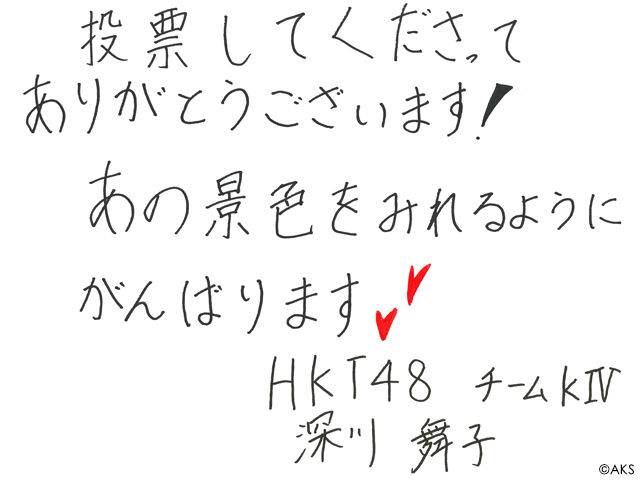 投票してくださって
ありがとうございます!
あの景色をみれるように
がんばります
HKT48 チームKⅣ
深川 舞子
©AKS